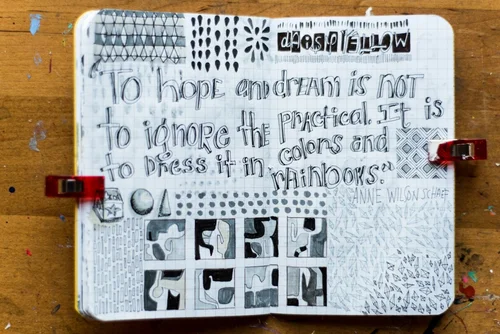 To hope and dream is not
to ignore the practical. It is
to dress it in colors and
rainbows."
ANNE WILSON SCHAEF